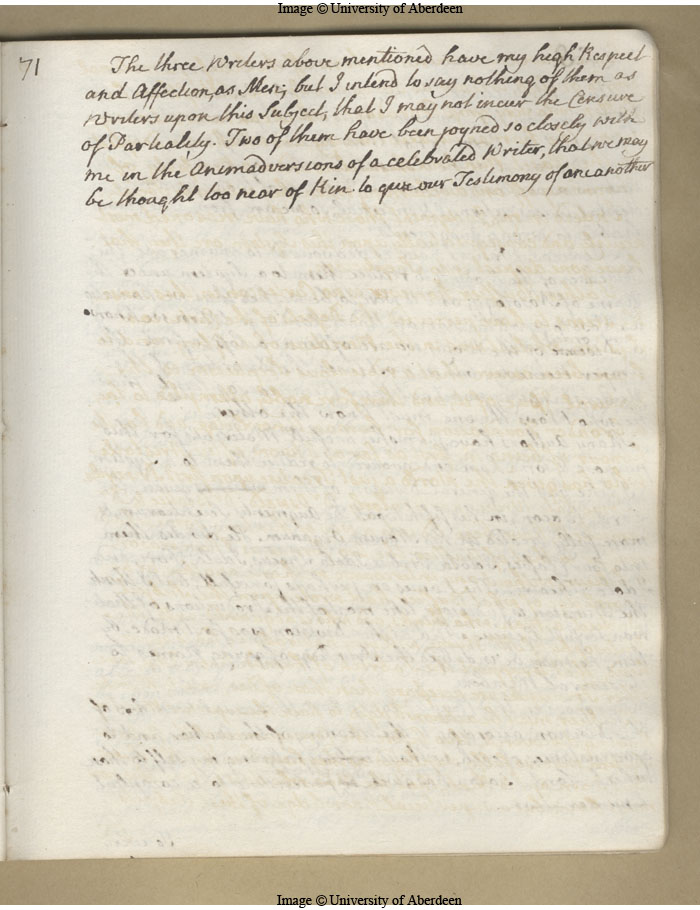 Image © University of Aberdeen
71
The three Writers above mentioned have my high Respect
and Affection, as Men; but I intend to say nothing of them as
Writers upon this Subject, that I may not incur the Censure
of Partiality. Two of them have been joyned so closely with
me in the Animadversions of a celebrated Writer, that we may
be thought too near of Kin to give our Testimony of one another
Image © University of Aberdeen